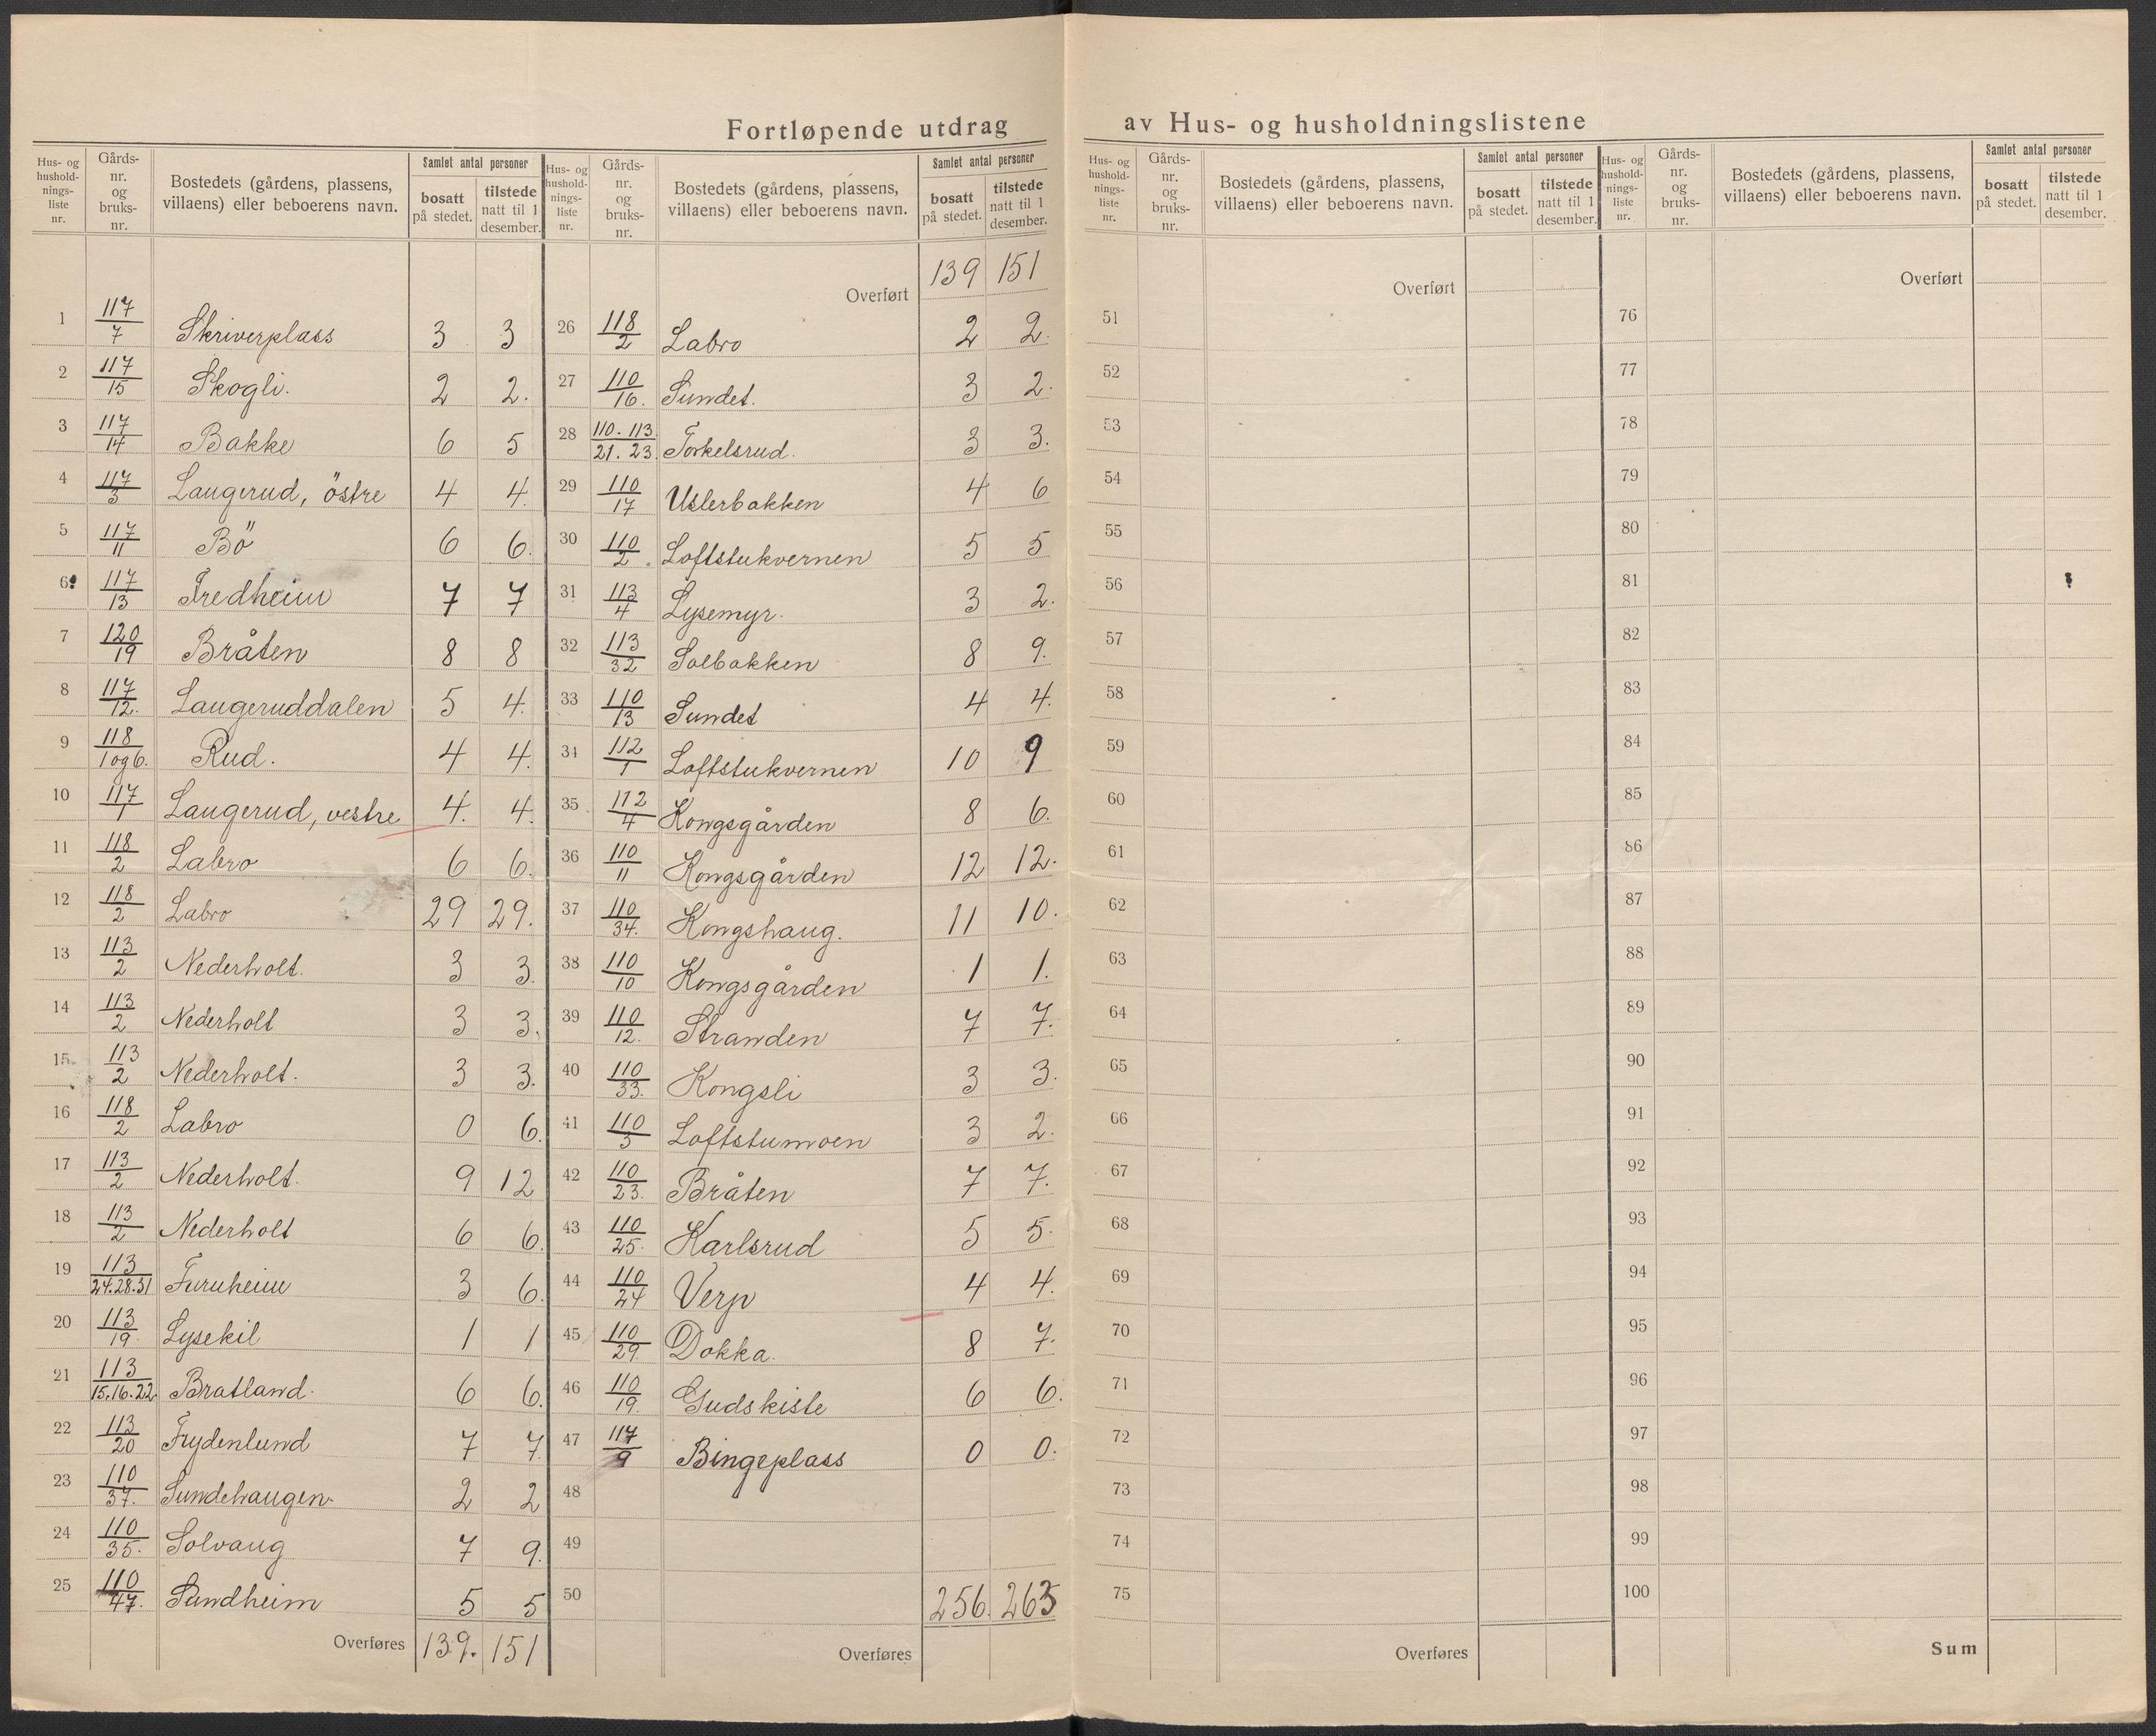 Fortløpende utdrag av Hus- og husholdningslistene
Hus- og hushold-nings-liste nr. | Gårds-nr. og bruks-nr. | Bostedets (gårdens, plassens, villaens) eller beboerens navn. | Samlet antal personer: bosatt på stedet. | tilstede natt til 1 desember.
1 117/7 Skriverplass 3 3
2 117/15 Skogli. 2 2.
3 117/14 Bakke 6 5
4 117/3 Laugerud, östre 4 4.
5 117/11 Bö 6 6.
6 117/13 Fredheim 7 7
7 120/19 Bråten 8 8
8 117/12. Laugeruddalen 5 4.
9 118/1 og 6. Rud. 4 4.
10 117/1 Laugerud, vestre 4. 4.
11 118/2 Labro 6 6.
12 118/2 Labro 29 29.
13 113/2 Nederholt. 3 3.
14 113/2 Nederholt 3 3.
15 113/2 Nederholt. 3 3.
16 118/2 Labro 0 6.
17 113/2 Nederholt. 9 12
18 113/2 Nederholt 6 6.
19 113/24.28.31 Furuheim 3 6.
20 113/19. Lysekil 1 1
21 113/15.16.22 Bratland. 6 6.
22 113/20 Frydenlund 7 7.
23 110/37. Sundehaugen. 2 2
24 110/35. Solvang 7 9.
25 110/47. Sundheim 5 5
Overføres 139. 151
Hus- og hushold-nings-liste nr. | Gårds-nr. og bruks-nr. | Bostedets (gårdens, plassens, villaens) eller beboerens navn. | Samlet antal personer: bosatt på stedet. | tilstede natt til 1 desember.
Overført 139 151
26 118/2 Labro 2 2.
27 110/16. Sundet. 3 2.
28 110. 113./21. 23. Torkelsrud. 3 3.
29 110/17 Uslerbakken 4 6
30 110/2. Loftstukvernen 5 5
31 113/4 Lysemyr. 3 2.
32 113/32 Solbakken 8 9.
33 110/13 Sundet 4 4.
34 112/1 Loftstukvernen 10 9
35 112/4 Kongsgården 8 6.
36 110/11 Kongsgården 12 12.
37 110/34. Kongshaug. 11 10.
38 110/10 Kongsgården 1 1.
39 110/12. Stranden 7 7.
40 110/33. Kongsli 3 3.
41 110/3 Loftstumoen 3 2.
42 110/23. Bråten 7 7.
43 110/25. Karlsrud 5 5.
44 110/24 Verp 4 4.
45 110/29. Dokka. 8 7.
46 110/19. Gudskiste 6 6.
47 117/9 Bingeplass 0 0.
48
49
50 256. 263
Overføres
Hus- og hushold-nings-liste nr. | Gårds-nr. og bruks-nr. | Bostedets (gårdens, plassens, villaens) eller beboerens navn. | Samlet antal personer: bosatt på stedet. | tilstede natt til 1 desember.
Overført
51
52
53
54
55
56
57
58
59
60
61
62
63
64
65
66
67
68
69
70
71
72
73
74
75
Overføres
Hus- og hushold-nings-liste nr. | Gårds-nr. og bruks-nr. | Bostedets (gårdens, plassens, villaens) eller beboerens navn. | Samlet antal personer: bosatt på stedet. | tilstede natt til 1 desember.
Overført
76
77
78
79
80
81
82
83
84
85
86
87
88
89
90
91
92
93
94
95
96
97
98
99
100
Sum